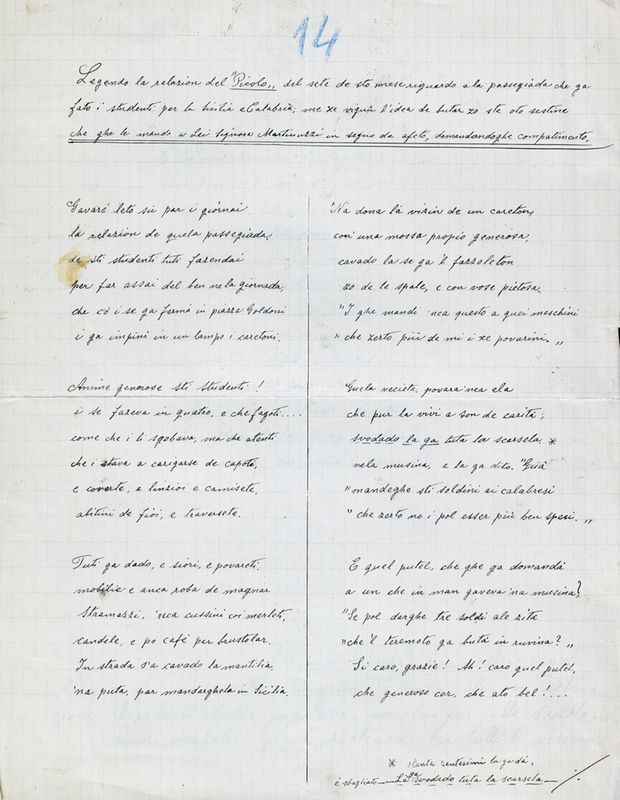 14
Legendo la relazion del "Picolo„ del sete de sto mese, riguardo a la passegiada che ga
fato i studenti per la Sicilia e Calabria; me xe vignù l'idea de butar zo ste oto sestine
che ghe le mando a Lei Signora Martinuzzi in segno de afeto, domandandoghe compatimento.
Gavarè leto sù par i giornai
la relazion de quela passegiada
de sti studenti tuti fazendai
per far assai del ben ne la giornada,
che cò i se ga fermà in piazza Goldoni
i ga impinì in un lampo i caretoni.
Anime generose sti studenti!
i se fareva in quatro, e che fagoti....
come che i li sgobava, ma che atenti
che i stava a carigarse de capoti,
e coverte, e linzioi e camisete,
abitini de fioi, e traversete.
Tuti ga dado, e siori, e povareti.
mobilie e anca roba de magnar
Stramazzi, 'nca cussini coi merleti,
candele, e po cafè per brustolar.
In strada s'a cavado la mantilia
'na puta, par mandarghela in Sicilia.
'Na dona là vizin de un careton,
con una mossa propio generosa,
cavado la se ga 'l fazzoleton
zo de le spale, e con vose pietosa,
"I ghe mandi 'nca questo a quei meschini
"che zerto più de mi i xe povarini.„
Quela vecieta, povara 'nca ela
che pur la vivi a son de carità;
svodado la ga tuta la scarsela *
nela musina, e la ga dito. "Quà
"mandeghe sti soldini ai calabresi
"che zerto no i pol esser più ben spesi.„
E quel putel, che ghe ga domandà
a un che in man gaveva 'na musina?
"Se pol darghe tre soldi ale zità
"che 'l teremoto ga butà in ruvina?„
Si caro, grazie! Ah! caro quel putel,
che generoso cor, che ato bel!...
* otanta zentesimi la ga dà,
è sbagliato — La ga svodado tuta la scarsela —